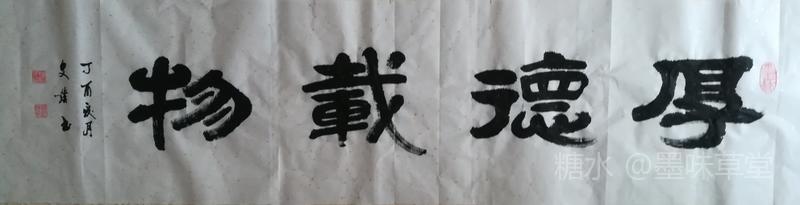 厚德載物
丁酉亥月
史
糖水 @墨味草堂